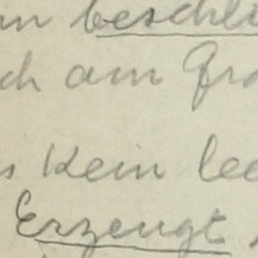 beschli
am Gra
kein lee
Erzeugt